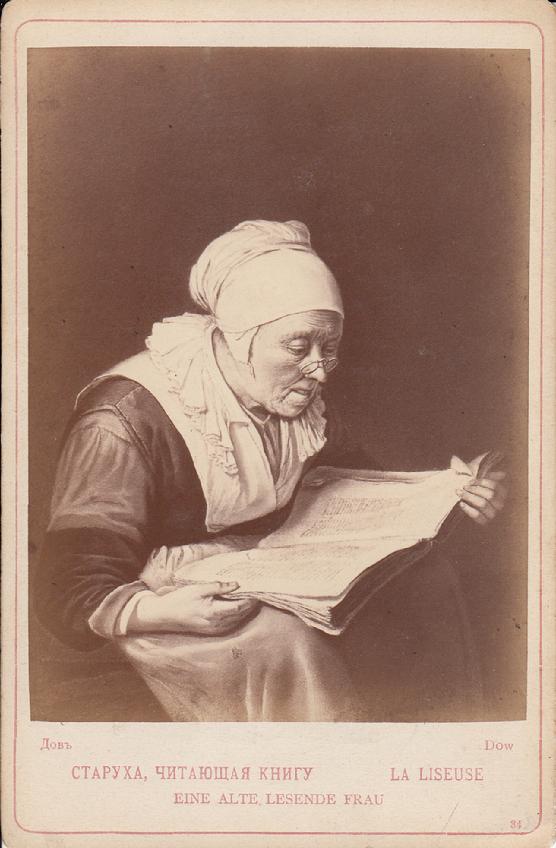 Довъ Dow
СТАРУХА, ЧИТАЮЩАЯ КНИГУ LA LISEUSE
EINE ALTE LESENDE FRAU
34